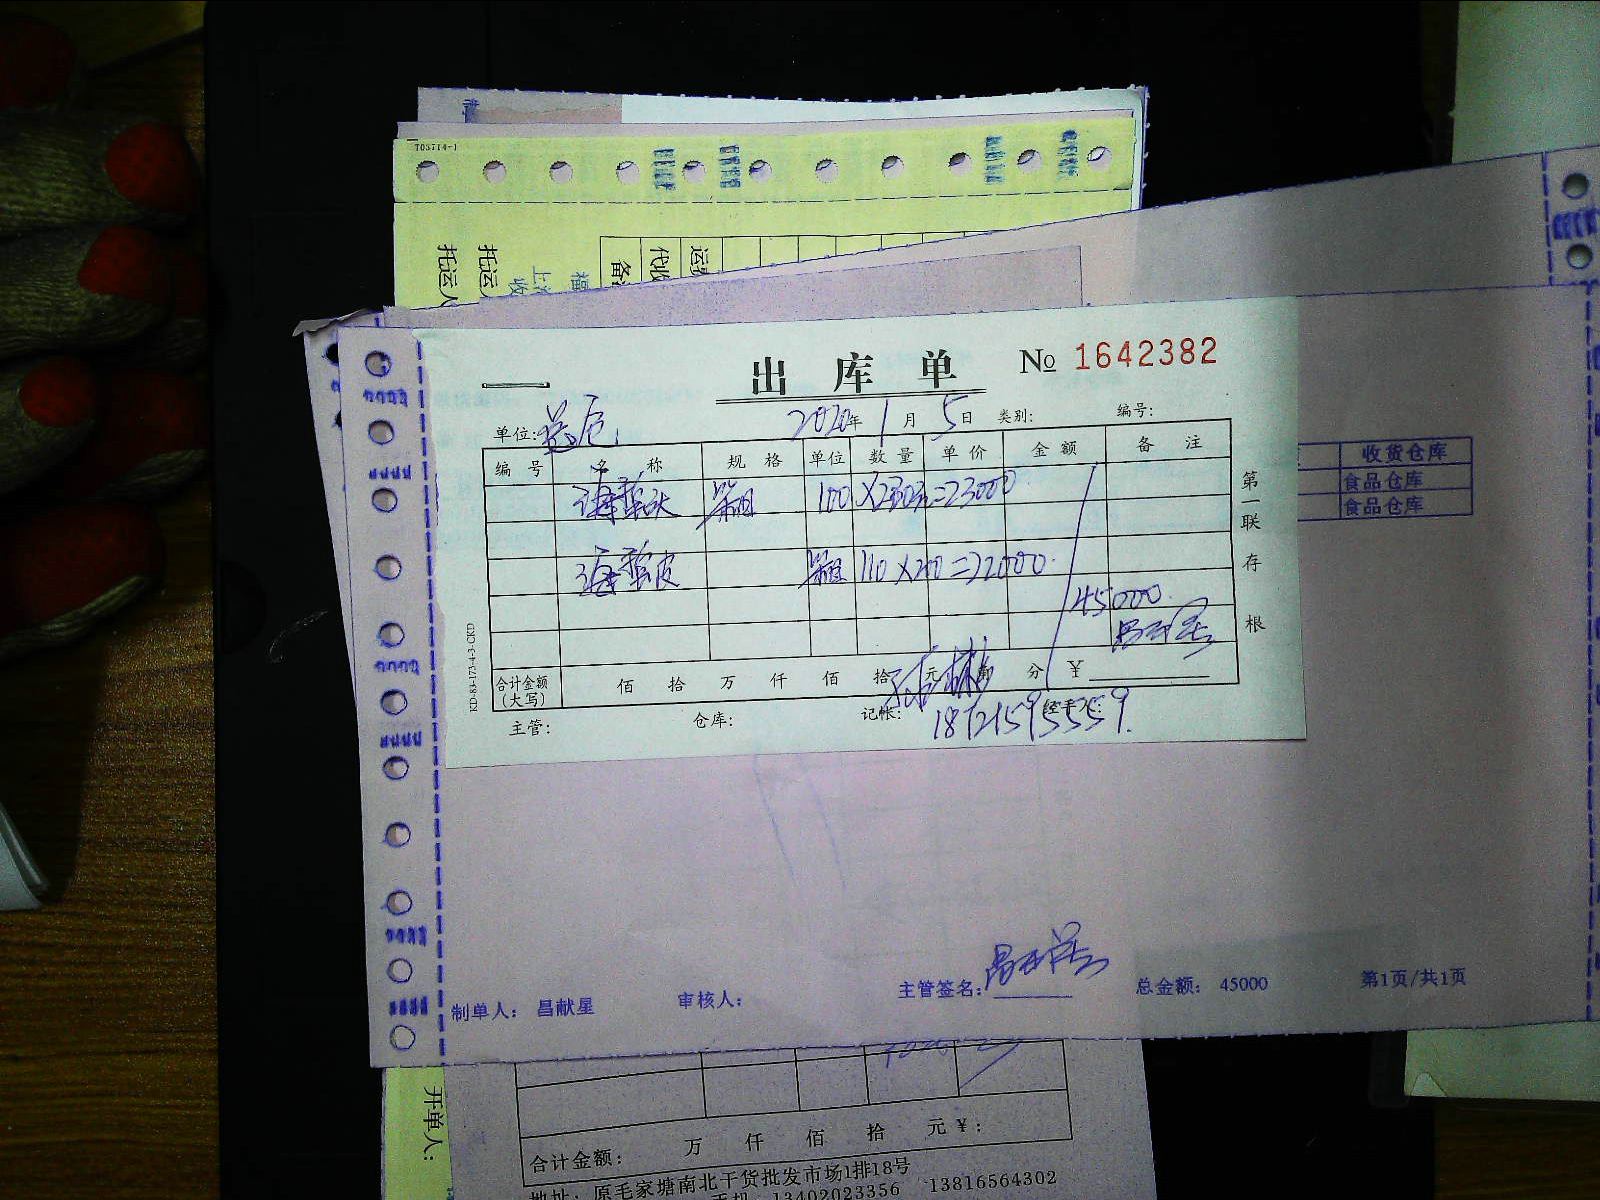 T03714-1
托运人
托运人
代收
备
收
出库单 № 1642382
2020年1月5日 类别: 编号:
单位:
编号 名称 规格 单位 数量 单价 金额 备注
海蜇头 箱 100×230元=23000
海蜇皮 箱 110×200=22000
45000
合计金额(大写) 佰 拾 万 仟 佰 拾 元 角 分 ¥
主管: 仓库: 记帐: 经手人:
18721595559
第一联 存根
KD-83-173-4-3-CKD
收货仓库
食品仓库
食品仓库
制单人: 昌献星 审核人: 主管签名: 总金额: 45000 第1页/共1页
开单人:
合计金额: 万 仟 佰 拾 元¥:
地址: 原毛家塘南北干货批发市场1排18号
手机: 13402023356 13816564302